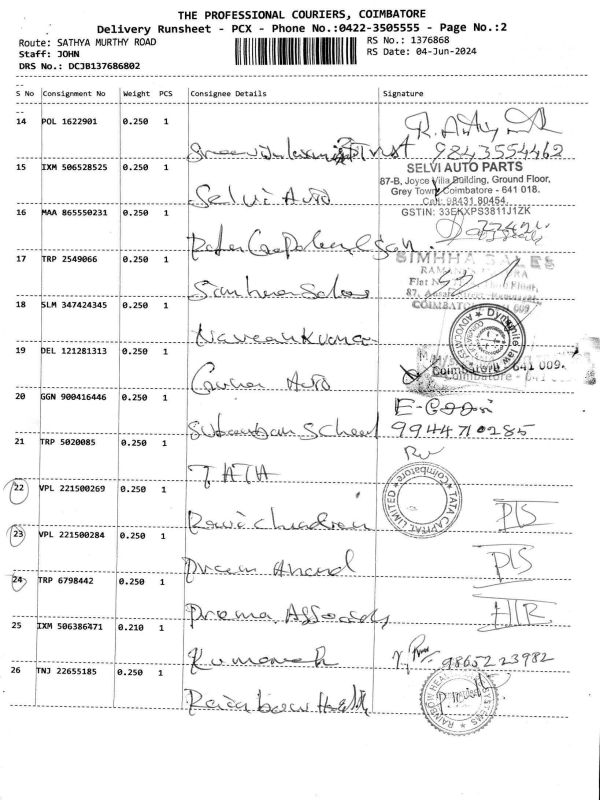 THE PROFESSIONAL COURIERS, COIMBATORE
Delivery Runsheet - PCX - Phone No.:0422-3505555 - Page No.:2
Route: SATHYA MURTHY ROAD
Staff: JOHN
DRS No.: DCJB137686802
RS No.: 1376868
RS Date: 04-Jun-2024
S No Consignment No Weight PCS Consignee Details Signature
14 POL 1622901 0.250 1
Trust 9843554462
15 IXM 506528525 0.250 1 Selvi Auto
SELVI AUTO PARTS
87-B, Joyce Villa Building, Ground Floor,
Grey Town, Coimbatore - 641 018.
Cell: 98431 80454
GSTIN: 33EKXPS3811J1ZK
16 MAA 865550231 0.250 1
17 TRP 2549066 0.250 1
SIMHHA SALES
COIMBATORE
18 SLM 347424345 0.250 1 Naveen Kumar
19 DEL 121281313 0.250 1 Auto
Coimbatore - 641 009.
20 GGN 900416446 0.250 1 Suburban School
9944710285
21 TRP 5020085 0.250 1 TATA
TATA CAPITAL LIMITED * Coimbatore *
22 VPL 221500269 0.250 1 Ravichandran
PIS
23 VPL 221500284 0.250 1 Prem Anand
PIS
24 TRP 6798442 0.250 1 Prema Associats
25 IXM 506386471 0.210 1
9865223982
26 TNJ 22655185 0.250 1 Rainbow Health